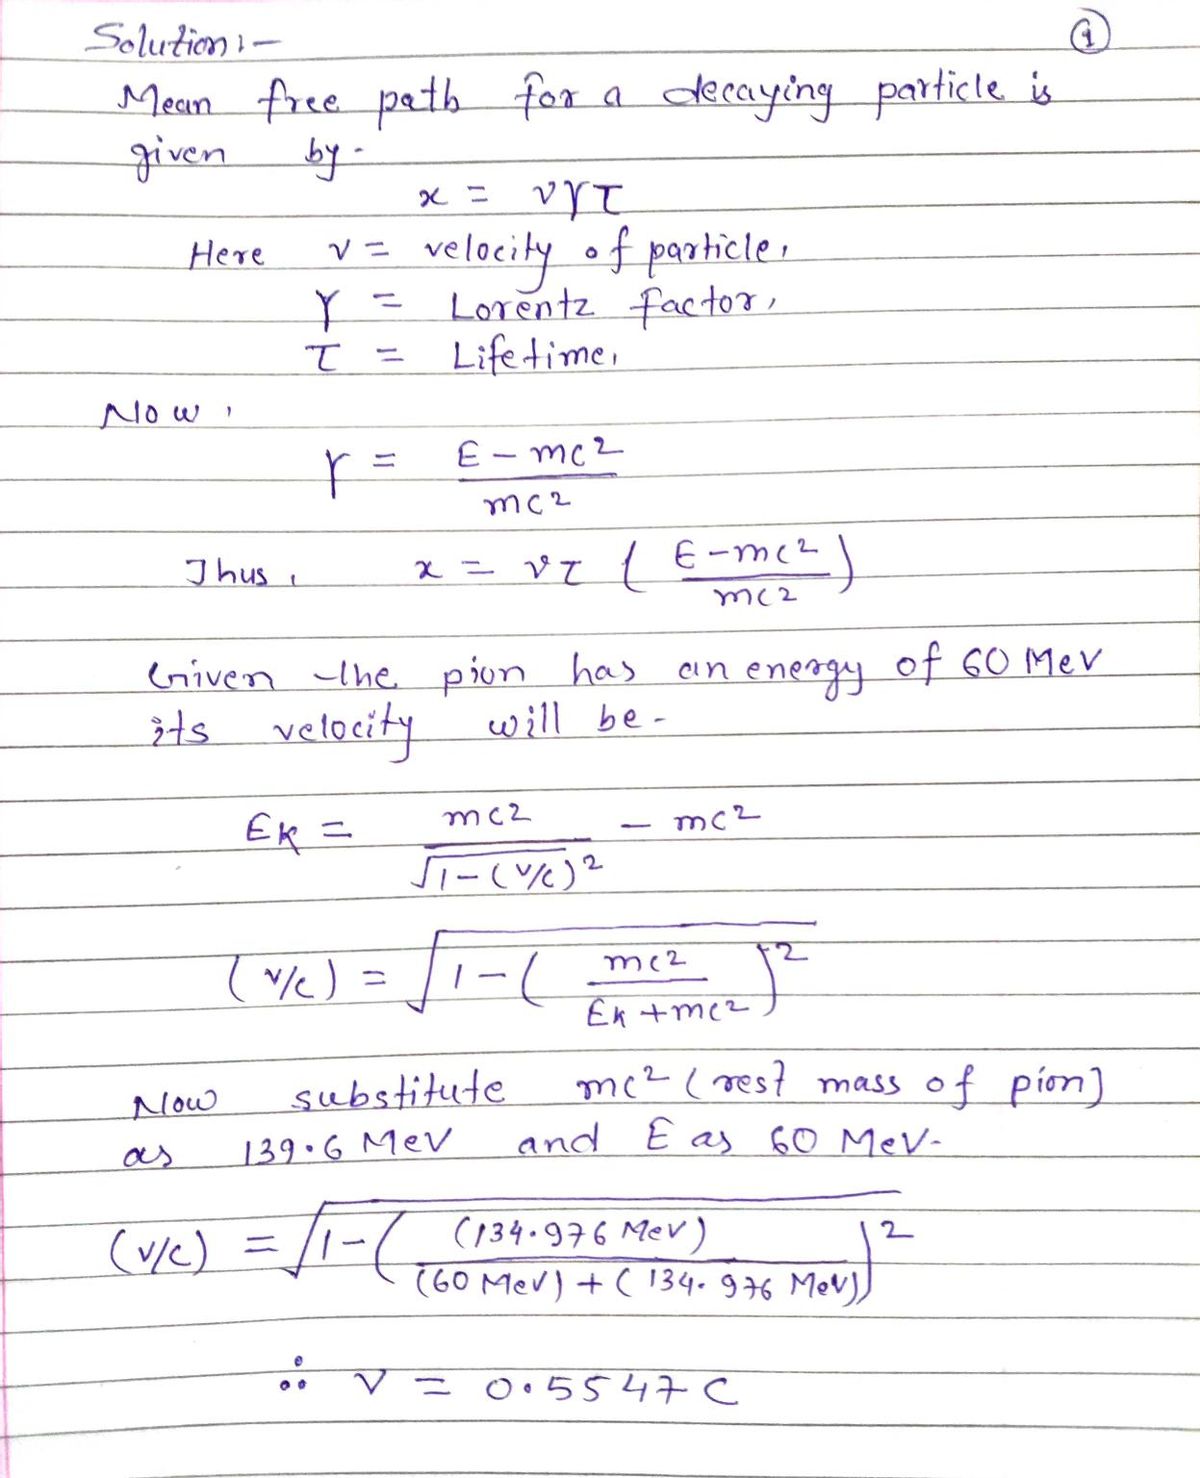 Solution:-
①
Mean free path for a decaying particle is
given by-
x = vγτ
Here v = velocity of particle,
γ = Lorentz factor,
τ = Lifetime,
Now,
γ = (E - mc²) / mc²
Thus, x = vτ ( (E - mc²) / mc² )
Given the pion has an energy of 60 MeV
its velocity will be-
Ek = mc² / √(1-(v/c)²) - mc²
(v/c) = √(1 - ( mc² / (Ek + mc²) )²)
Now substitute mc² (rest mass of pion)
as 139.6 MeV and E as 60 MeV-
(v/c) = √(1 - ( (134.976 MeV) / ((60 MeV) + (134.976 MeV)) )²)
∴ v = 0.5547 C